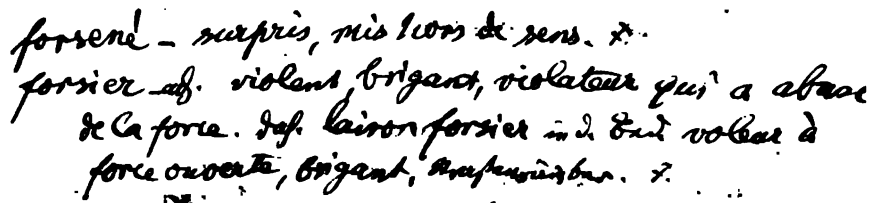 forsené - surpris, mis hors de sens. x.
forsier adj. violent, brigant, violateur qui a abusé
de la force. lairon forsier voleur à
force ouverte, brigant,